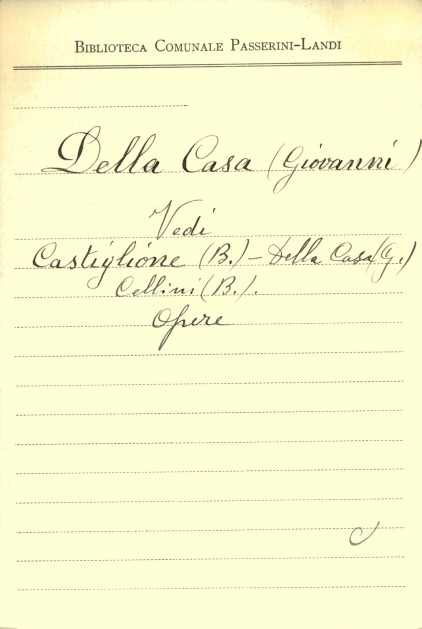 Biblioteca Comunale Passerini-Landi
Della Casa (Giovanni)
Vedi
Castiglione (B.) - Della Casa (G.)
Cellini (B.).
Opere